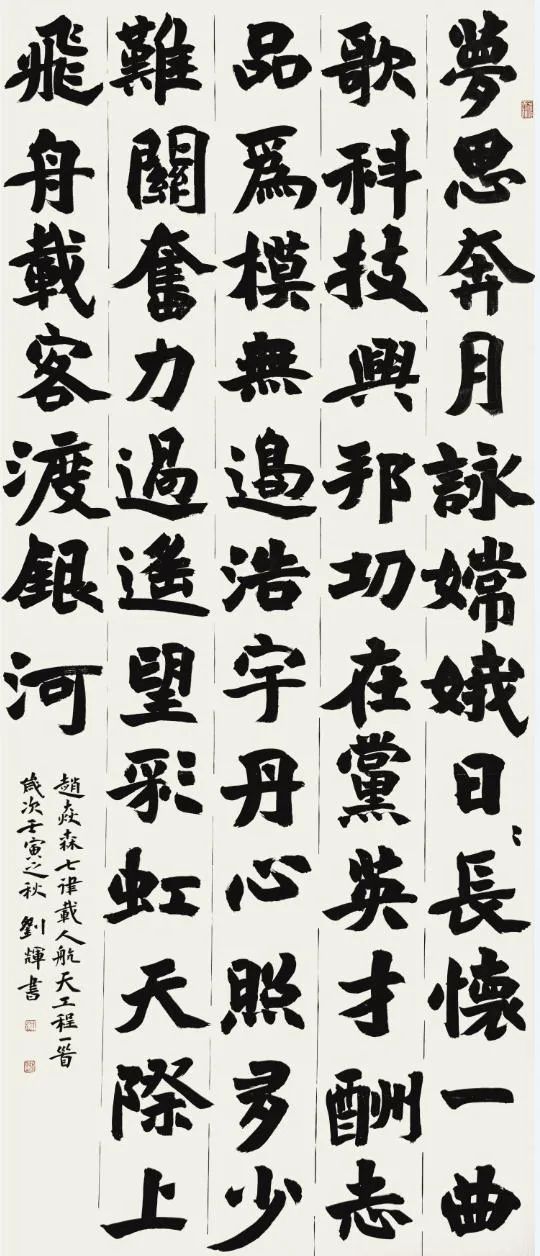 夢思奔月詠嫦娥日〻長懷一曲
歌科技興邦功在黨英才酬志
品為模無邊浩宇丹心照多少
難關奮力過遙望彩虹天際上
飛舟載客渡銀河
趙焱森七律載人航天工程一首
歲次壬寅之秋 劉輝書